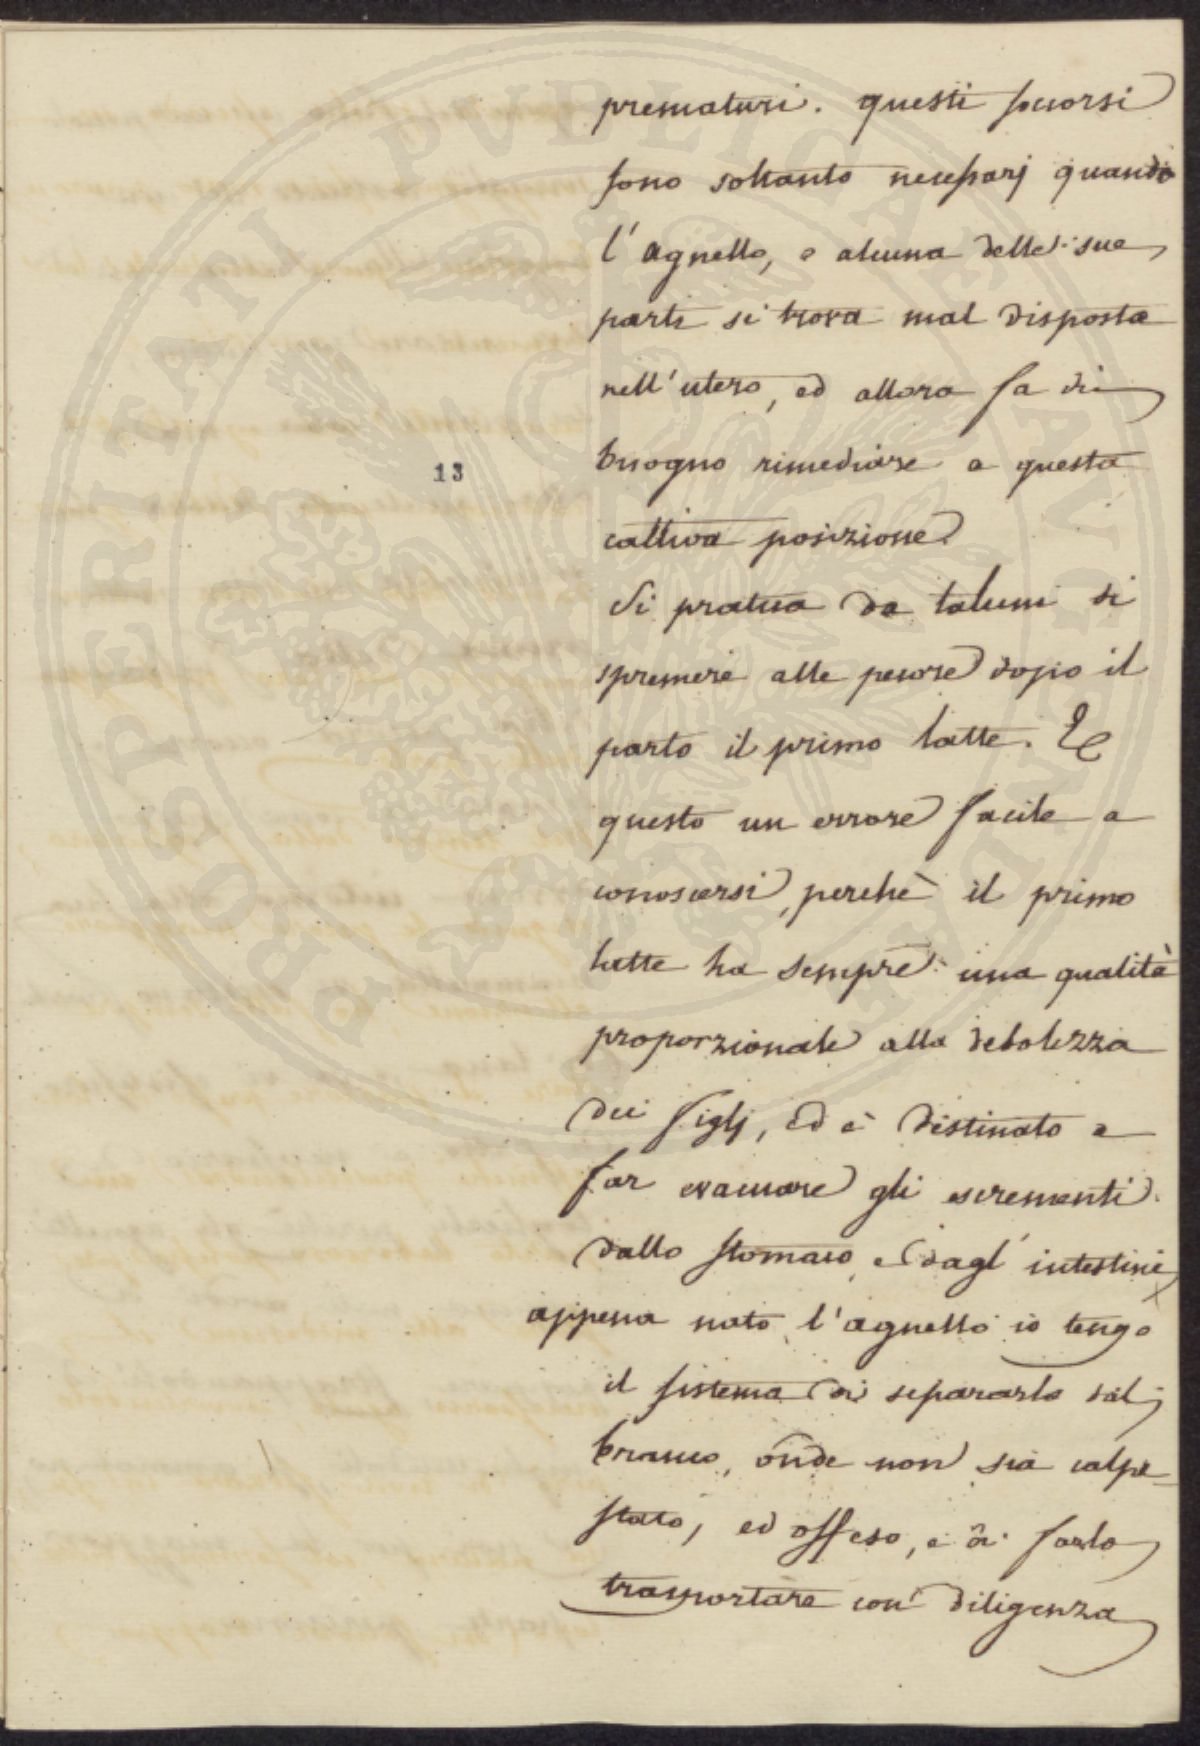 prematuri. questi soccorsi
sono soltanto necessarj quando
l'agnello, o alcuna delle sue
parti si trova mal disposta
nell'utero, ed allora fa di
bisogno rimediare a questa
cattiva posizione.
Si pratica da taluni di
spremere alle pecore dopo il
parto il primo latte. È
questo un errore facile a
conoscersi, perchè il primo
latte ha sempre una qualità
proporzionale alla debolezza
dei figlj, ed è destinato a
far evacuare gli escrementi
dallo stomaco, e dagl'intestini
appena nato l'agnello io tengo
il sistema di separarlo dal
branco, onde non sia calpe-
stato, ed offeso, e di farlo
trasportare con diligenza
13
PROSPERITATI PVBLICAE AVGENDAE